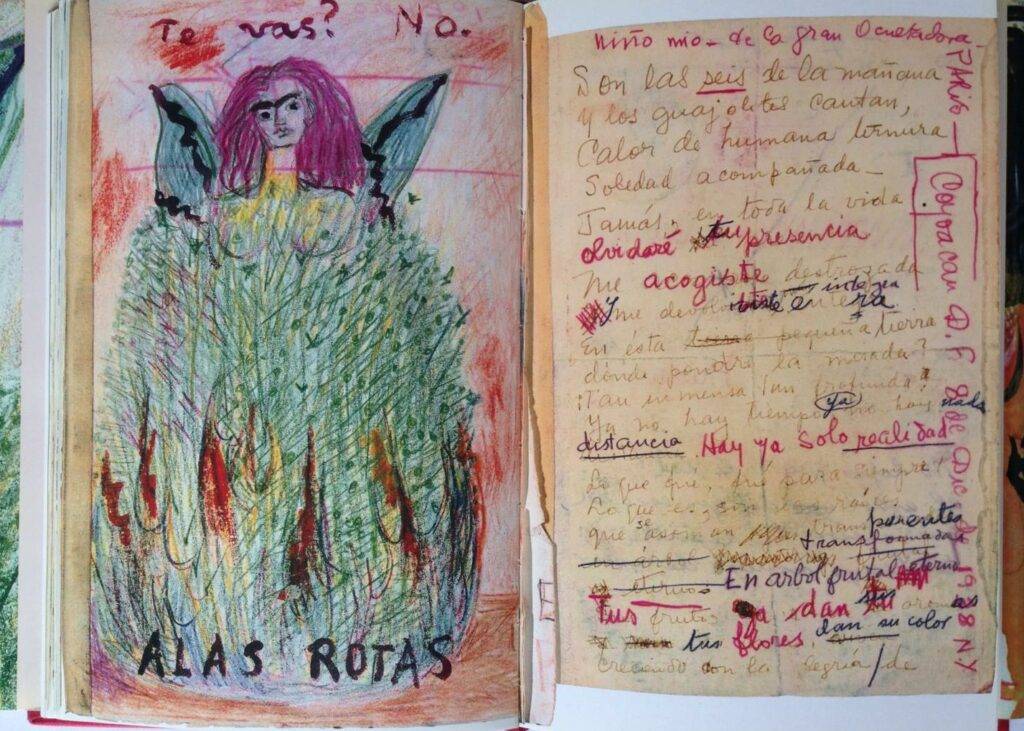 Te vas? No.
ALAS ROTAS
Niño mio - de la gran Ocultadora -
Son las seis de la mañana
y los guajolotes cantan,
Calor de humana ternura
Soledad acompañada -
Jamás, en toda la vida
olvidaré tu presencia
Me acogiste destrozada
y me devolviste integra
entera
En ésta pequeña tierra
dónde pondré la mirada?
¡Tan inmensa tan profunda!
Ya no hay tiempo, ya no hay nada
distancia. Hay ya solo realidad
Lo que fué, fué para siempre!
Lo que es, son las raíces
que se asoman
transformadas
En arbol frutal eterno
Tus frutas ya dan sus aromas
tus flores dan su color
creciendo con la alegría / de
PARIS - Coyoacan D.F. 8 de Dic de 1938 NY